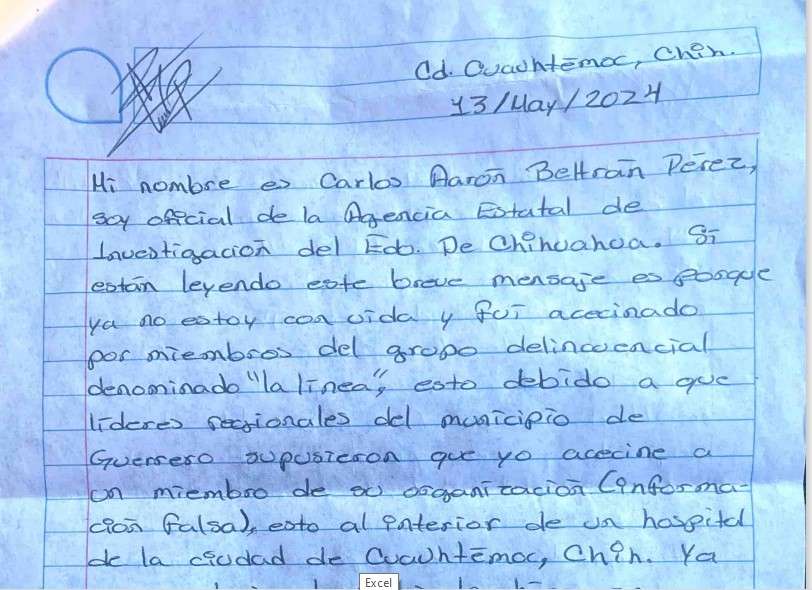 Cd. Cuauhtémoc, Chih.
13/May/2024
Mi nombre es Carlos Aarón Beltrán Pérez,
soy oficial de la Agencia Estatal de
Investigación del Edo. De Chihuahua. Si
están leyendo este breve mensaje es porque
ya no estoy con vida y fui acecinado
por miembros del grupo delincuencial
denominado "la línea", esto debido a que
líderes regionales del municipio de
Guerrero supusieron que yo acecine a
un miembro de su organización (informa-
ción falsa), esto al interior de un hospital
de la ciudad de Cuauhtémoc, Chih. Ya
Excel